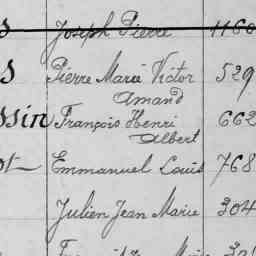 Joseph Pierre 1160
Pierre Marie Victor 529
Amand
ssin François Henri 662
Albert
Emmanuel Louis 768
Julien Jean Marie 304